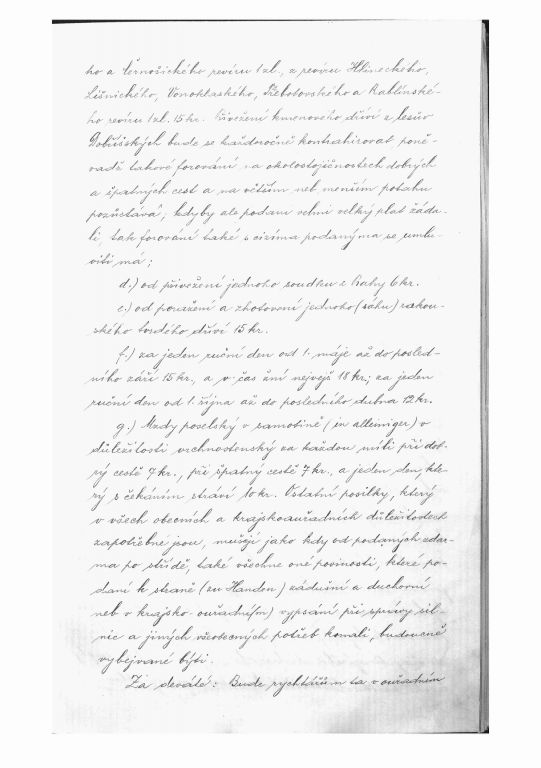 ho a Černošického revíru 1 zl., z revíru Hlineckého,
Líšnického, Vonoklaského, Třebotovského a Karlínské-
ho revíru 1 zl. 15 kr. Přivežení kmenového dříví z lesův
Dobříšských bude se každoročně kontrahirovat poně-
vadž takové forování na okolostojičnostech dobrých
a špatných cest a na větším neb menším potahu
pozůstává; kdyby ale podaní velmi velký plat žáda-
li, tak forování také s cizíma podanýma se umlu-
viti má;
d.) od přivežení jednoho soudku z Prahy 6 kr.
e.) od poražení a zhotovení jednoho (sáhu) rakou-
ského tvrdého dříví 15 kr.
f.) za jeden ruční den od 1. máje až do posled-
ního září 15 kr., a v čas žní nejvejš 18 kr.; za jeden
ruční den od 1. října až do posledního dubna 12 kr.
g.) Mzdy poselský v samotině (in alleiniger) v
důležitosti vrchnostenský za každou míli při dob-
rý cestě 4 kr., při špatný cestě 7 kr., a jeden den, kte-
rý s čekáním stráví 10 kr. Ostatní posilky, který
v všech obecních a krajskoouřadních důležitostech
zapotřebné jsou, musejí jako kdy od podaných zdar-
ma po střídě, také všechne oné povinosti, které po-
daní k straně (zu Handen) zádušní a duchovní
neb v krajsko-ouřadní(m) vypsání při správy sil-
nic a jiných všeobecných potřeb konali, budoucně
vybejvané býti.
Za deváté: Bude rychtářům ta v ouřadním